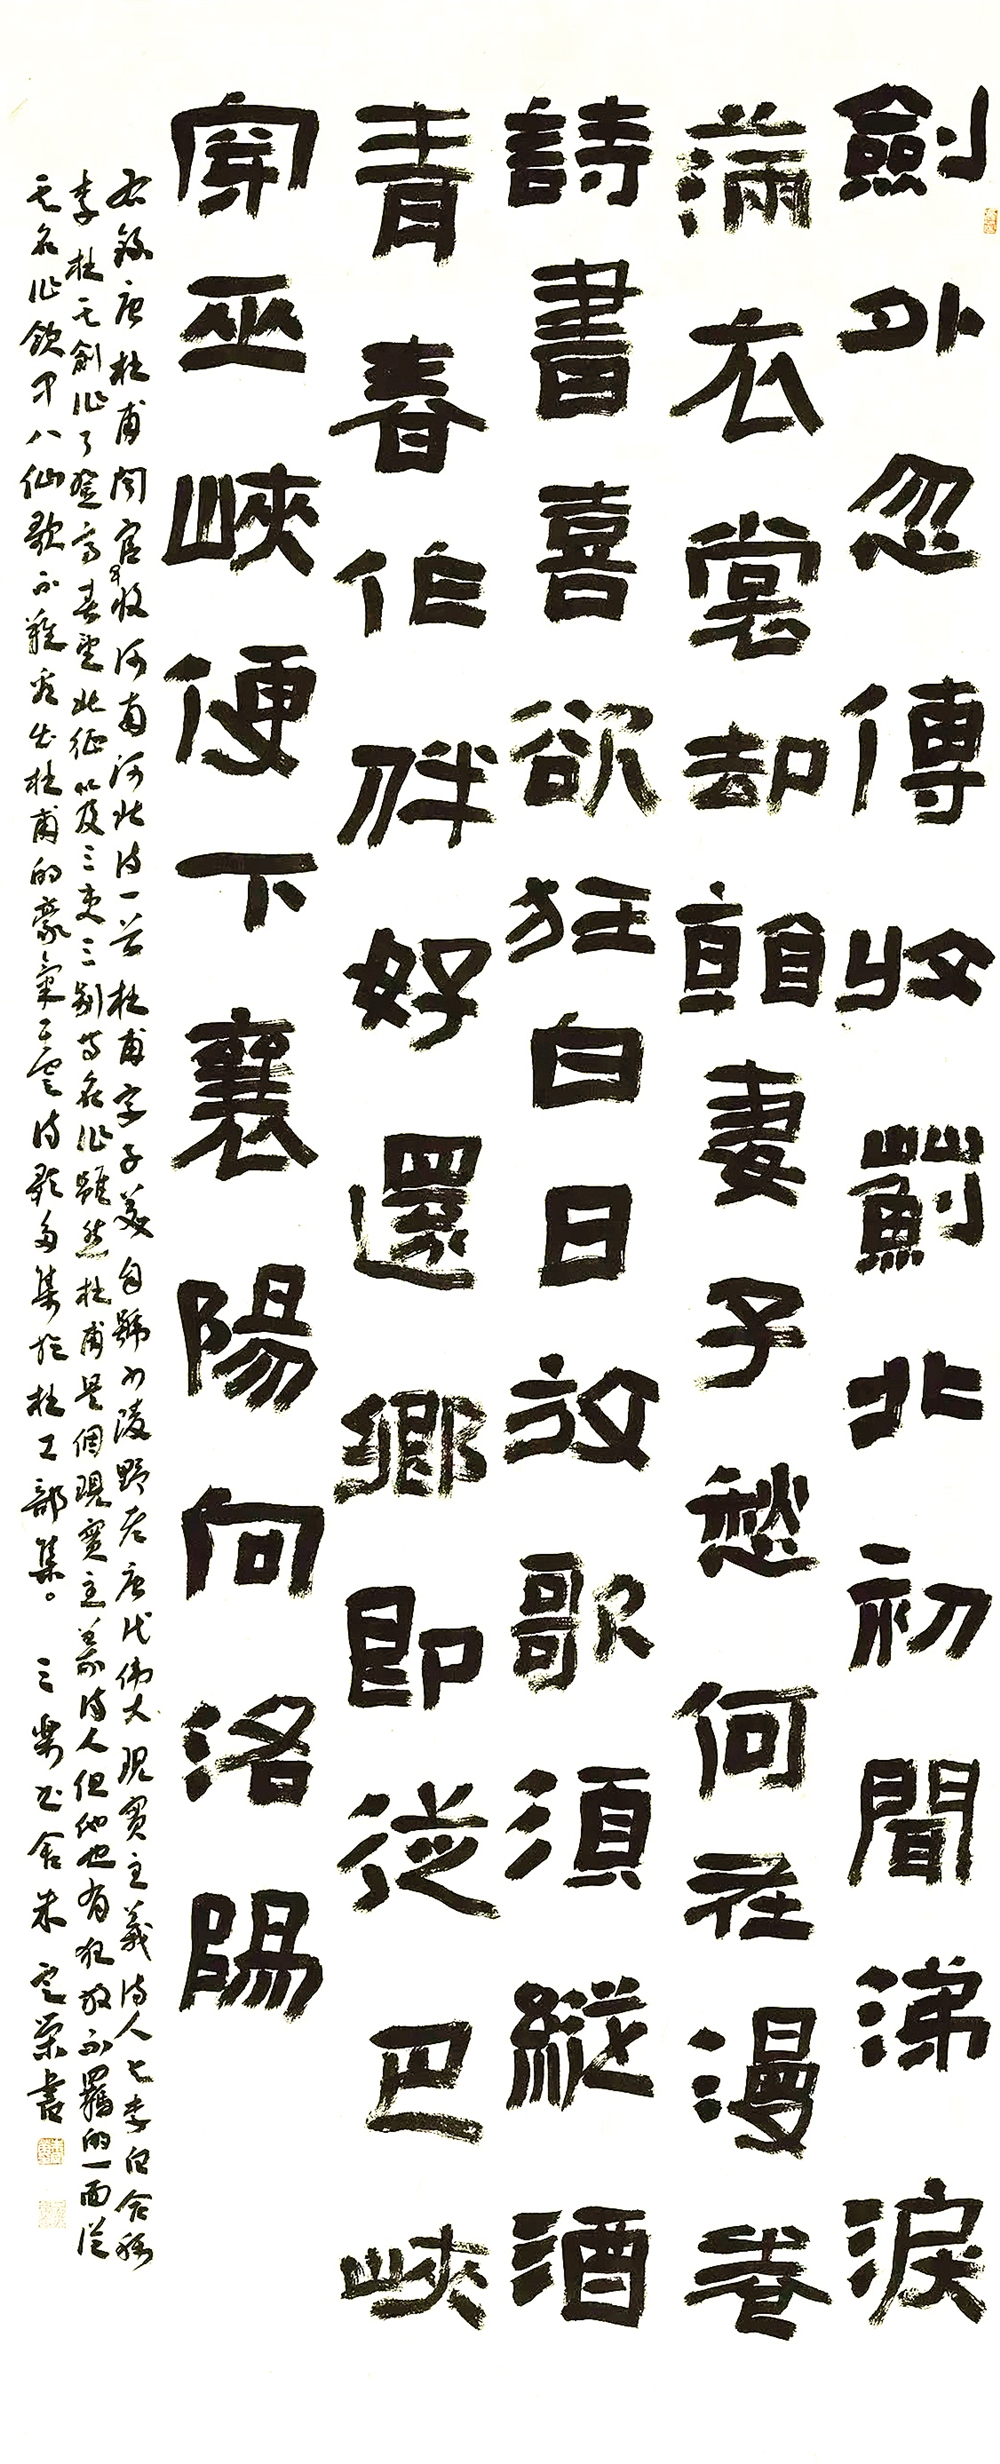 劍外忽傳收薊北初聞涕淚
滿衣裳却妻子愁何在漫卷
詩書喜欲狂白日放歌須縱酒
青春作伴好還鄉即從巴峽
穿巫峽便下襄陽向洛陽
右錄唐杜甫聞官軍收河南河北詩一首杜甫字子美自號少陵野老唐代偉大現實主義詩人与李白合稱
李杜其創作了登高春望北征以及三吏三别等名作雖然杜甫是個現實主義詩人但他也有狂放不羈的一面從
其名作飲中八仙歌不難看出杜甫的豪氣干雲詩歌多集於杜工部集。三樂書舍朱定荣書